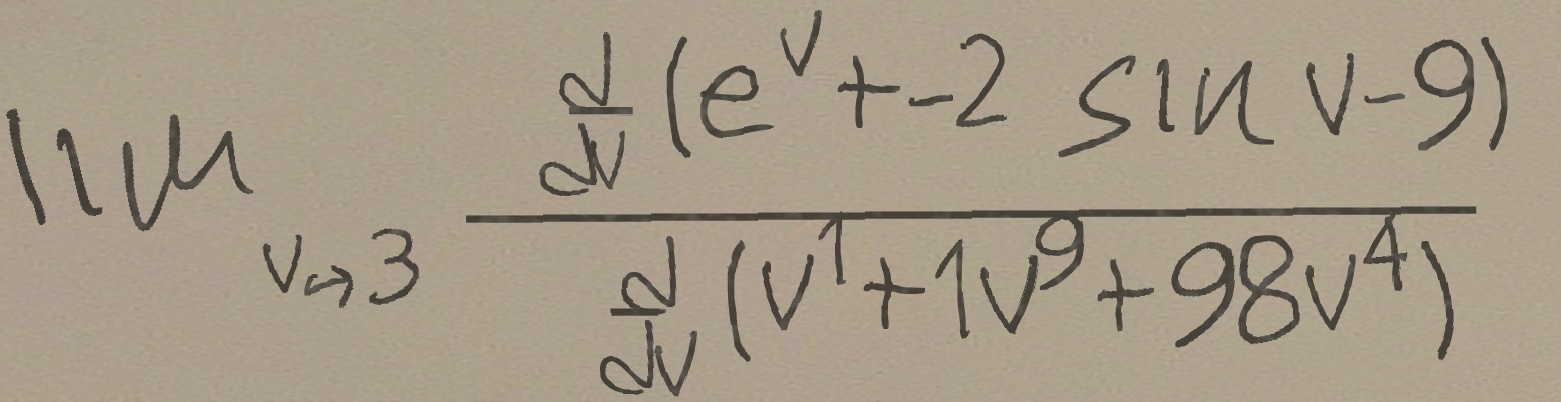 \lim_{v \to 3} \frac{\frac{d}{dv}(e^v + -2 \sin v - 9)}{\frac{d}{dv}(v^1 + 1v^9 + 98v^4)}